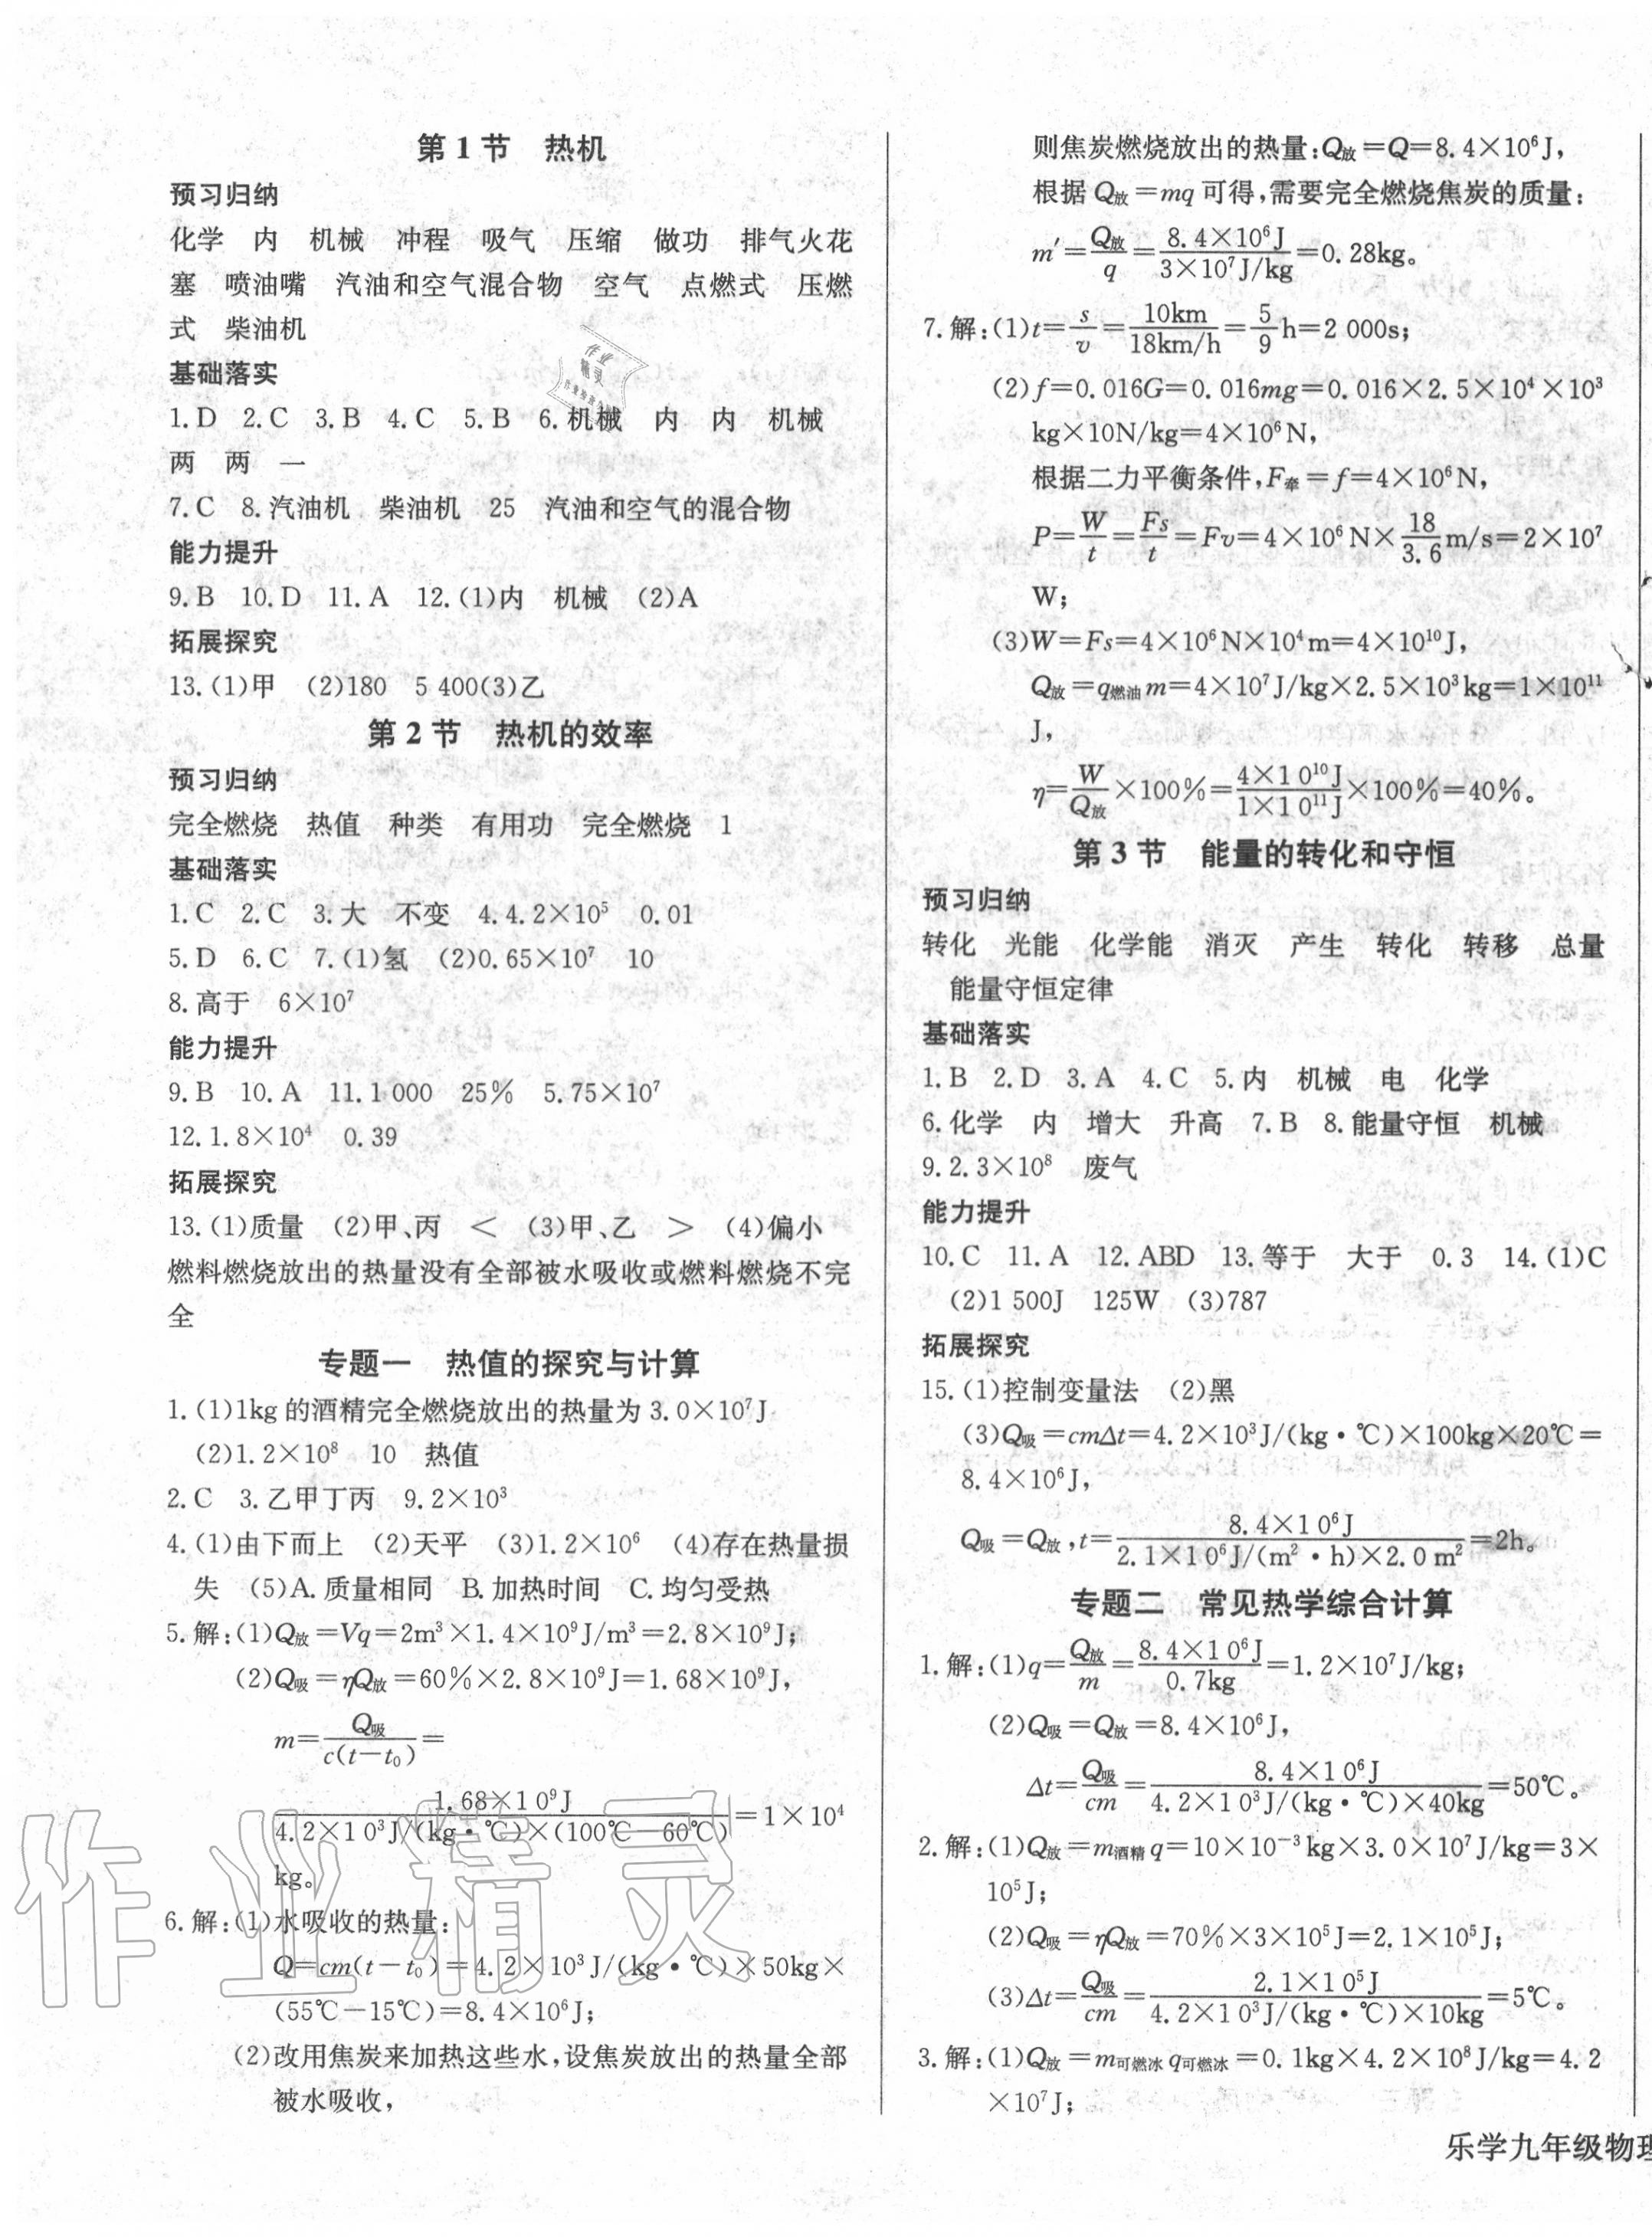 第1节 热机
预习归纳
化学 内 机械 冲程 吸气 压缩 做功 排气火花
塞 喷油嘴 汽油和空气混合物 空气 点燃式 压燃
式 柴油机
基础落实
1.D 2.C 3.B 4.C 5.B 6.机械 内 内 机械
两 两 一
7.C 8.汽油机 柴油机 25 汽油和空气的混合物
能力提升
9.B 10.D 11.A 12.(1)内 机械 (2)A
拓展探究
13.(1)甲 (2)180 5 400(3)乙
第2节 热机的效率
预习归纳
完全燃烧 热值 种类 有用功 完全燃烧 1
基础落实
1.C 2.C 3.大 不变 4.4.2×10⁵ 0.01
5.D 6.C 7.(1)氢 (2)0.65×10⁷ 10
8.高于 6×10⁷
能力提升
9.B 10.A 11.1 000 25% 5.75×10⁷
12.1.8×10⁴ 0.39
拓展探究
13.(1)质量 (2)甲、丙 < (3)甲、乙 > (4)偏小
燃料燃烧放出的热量没有全部被水吸收或燃料燃烧不完
全
专题一 热值的探究与计算
1.(1)1kg的酒精完全燃烧放出的热量为3.0×10⁷J
(2)1.2×10⁸ 10 热值
2.C 3.乙甲丁丙 9.2×10³
4.(1)由下而上 (2)天平 (3)1.2×10⁶ (4)存在热量损
失 (5)A.质量相同 B.加热时间 C.均匀受热
5.解:(1)Q放=Vq=2m³×1.4×10⁹J/m³=2.8×10⁹J;
(2)Q吸=ηQ放=60%×2.8×10⁹J=1.68×10⁹J,
m=Q吸/c(t-t₀)=
1.68×10⁹J/4.2×10³J/(kg·℃)×(100℃-60℃)=1×10⁴
kg。
6.解:(1)水吸收的热量:
Q=cm(t-t₀)=4.2×10³J/(kg·℃)×50kg×
(55℃-15℃)=8.4×10⁶J;
(2)改用焦炭来加热这些水,设焦炭放出的热量全部
被水吸收,
则焦炭燃烧放出的热量:Q放=Q=8.4×10⁶J,
根据Q放=mq可得,需要完全燃烧焦炭的质量:
m′=Q放/q=8.4×10⁶J/3×10⁷J/kg=0.28kg。
7.解:(1)t=s/v=10km/18km/h=5/9h=2 000s;
(2)f=0.016G=0.016mg=0.016×2.5×10⁴×10³
kg×10N/kg=4×10⁶N,
根据二力平衡条件,F牵=f=4×10⁶N,
P=W/t=Fs/t=Fv=4×10⁶N×18/3.6m/s=2×10⁷
W;
(3)W=Fs=4×10⁶N×10⁴m=4×10¹⁰J,
Q放=q燃油m=4×10⁷J/kg×2.5×10³kg=1×10¹¹
J,
η=W/Q放×100%=4×10¹⁰J/1×10¹¹J×100%=40%。
第3节 能量的转化和守恒
预习归纳
转化 光能 化学能 消灭 产生 转化 转移 总量
能量守恒定律
基础落实
1.B 2.D 3.A 4.C 5.内 机械 电 化学
6.化学 内 增大 升高 7.B 8.能量守恒 机械
9.2.3×10⁸ 废气
能力提升
10.C 11.A 12.ABD 13.等于 大于 0.3 14.(1)C
(2)1 500J 125W (3)787
拓展探究
15.(1)控制变量法 (2)黑
(3)Q吸=cmΔt=4.2×10³J/(kg·℃)×100kg×20℃=
8.4×10⁶J,
Q吸=Q放,t=8.4×10⁶J/2.1×10⁶J/(m²·h)×2.0m²=2h。
专题二 常见热学综合计算
1.解:(1)q=Q放/m=8.4×10⁶J/0.7kg=1.2×10⁷J/kg;
(2)Q吸=Q放=8.4×10⁶J,
Δt=Q吸/cm=8.4×10⁶J/4.2×10³J/(kg·℃)×40kg=50℃。
2.解:(1)Q放=m酒精q=10×10⁻³kg×3.0×10⁷J/kg=3×
10⁵J;
(2)Q吸=ηQ放=70%×3×10⁵J=2.1×10⁵J;
(3)Δt=Q吸/cm=2.1×10⁵J/4.2×10³J/(kg·℃)×10kg=5℃。
3.解:(1)Q放=m可燃冰q可燃冰=0.1kg×4.2×10⁸J/kg=4.2
×10⁷J;
乐学九年级物理
作业精灵
作业
精灵